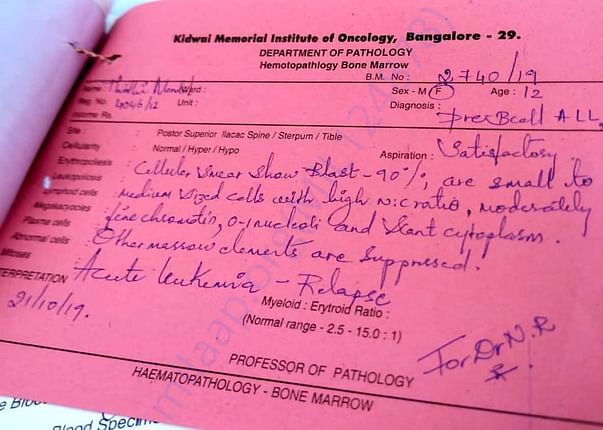 Kidwai Memorial Institute of Oncology, Bangalore - 29.
DEPARTMENT OF PATHOLOGY
Hemotopathlogy Bone Marrow
B.M. No : 2740/19
Name: Ward :
Sex - M F Age : 12
Reg. No. 4046/12 Unit :
Diagnosis :
Income Rs.
Pre B cell ALL
Site : Postor Superior Ilacac Spine / Sterpum / Tible
Cellularity : Normal / Hyper / Hypo Aspiration : Satisfactory
Erythropoiesis : Cellular smear show Blast - 90%, are small to
Leukopoiesis : medium sized cells with high N:C ratio, moderately
Lymphoid cells : fine chromatin, 0-1 nucleoli and scant cytoplasm.
Megakaryocytes
Plasma cells : Other marrow elements are suppressed.
Abnormal cells
Mitoses
TERPRETATION Acute leukemia - Relapse
21/10/19.
Myeloid : Erytroid Ratio :
(Normal range - 2.5 - 15.0 : 1)
For Dr N.R
PROFESSOR OF PATHOLOGY
HAEMATOPATHOLOGY - BONE MARROW